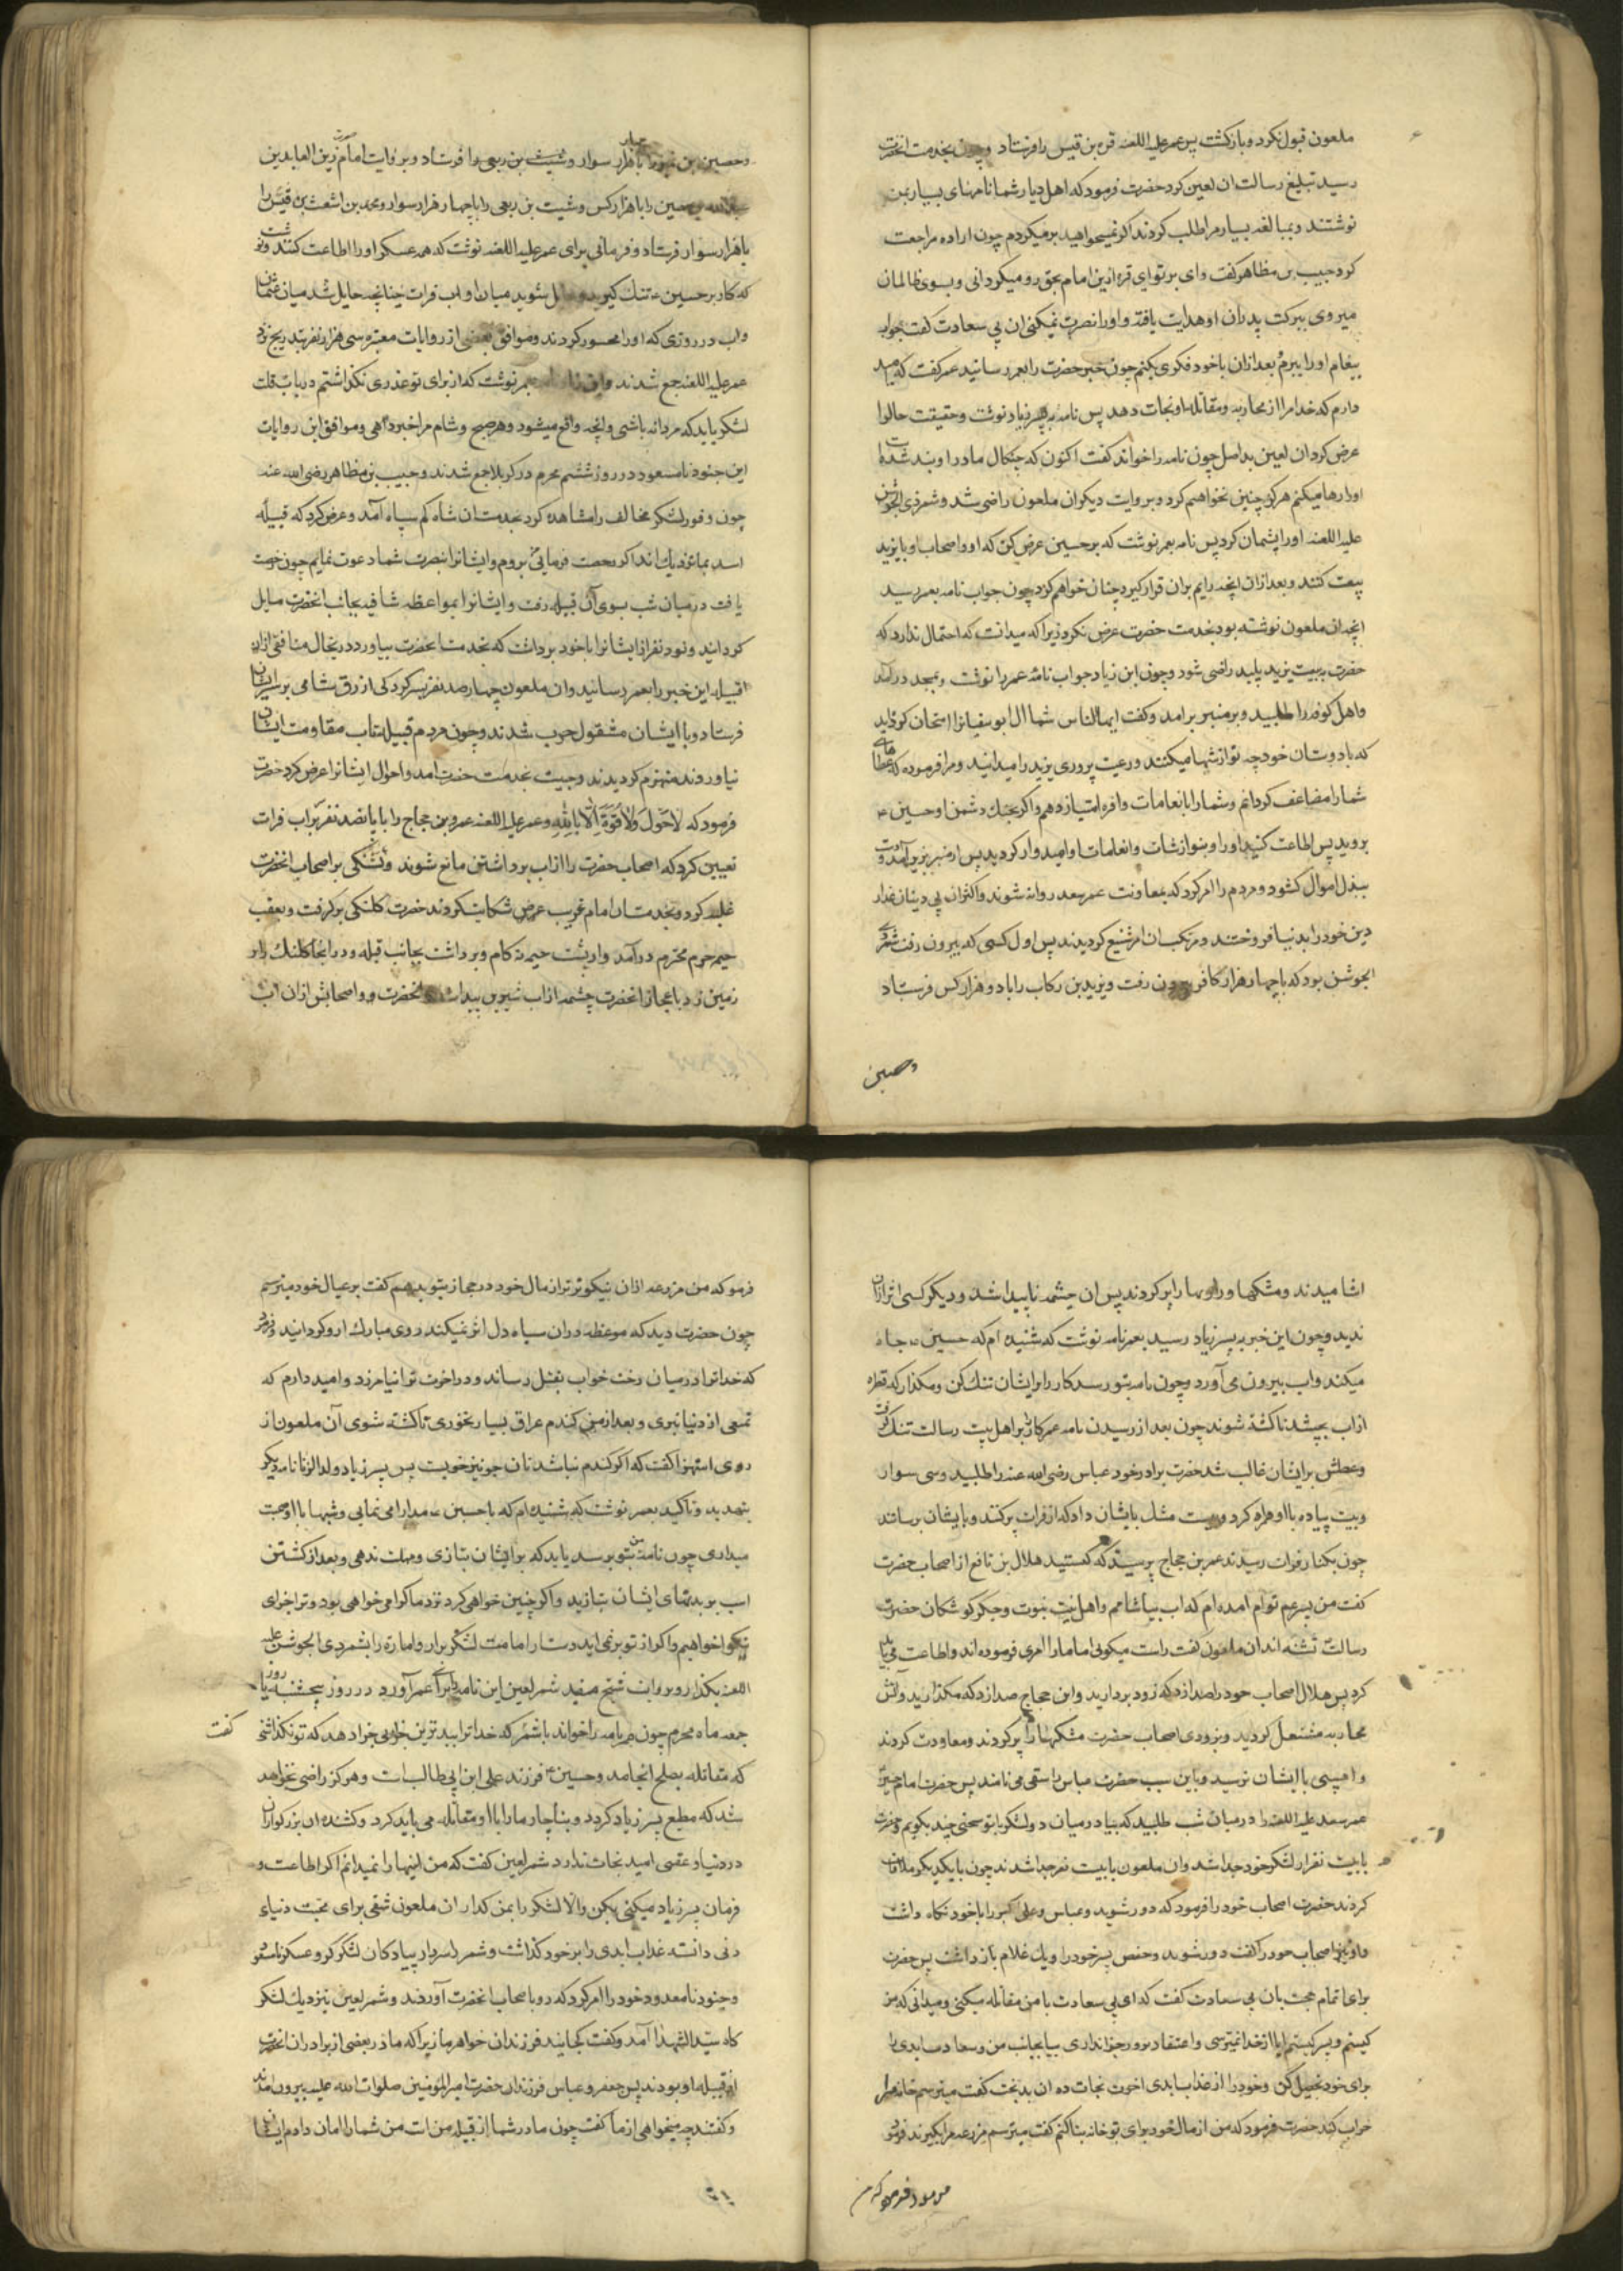 ملعون قبول نکرد و بازکشت پس عمر علیه اللعنه قره بن قیس را فرستاد و چون بخدمت انحضرت
رسید تبلیغ رسالت ان لعین کرد حضرت فرمود که اهل دیار شما نامهای بسیار بمن
نوشتند و بمبالغه بسیار مرا طلب کردند اکر نمیخواهید برمیکردم چون اراده مراجعت
کرد حبیب بن مظاهر کفت وای بر تو ای قره ازین امام بحق رو میکردانی و بسوی ظالمان
میروی ببرکت پدران او هدایت یافته و او را نصرت نمیکنی ان بی سعادت کفت جواب
پیغام او را ببرم بعد ازان با خود فکری بکنم چون خبر حضرت را بعمر رسانید عمر کفت که امید
دارم که خدا مرا از محاربه و مقاتله او نجات دهد پس نامه به پسر زیاد نوشت و حقیقت حال را
عرض کرد ان لعین بد اصل چون نامه را خواند کفت اکنون که چنکال ما در او بند شده است
او را رها میکنم هرکز چنین نخواهم کرد و بروایت دیکر ان ملعون راضی شد و شمر ذی الجوشن
علیه اللعنه او را پشیمان کرد پس نامه بعمر نوشت که بر حسین عرض کن که او و اصحاب او با یزید
بیعت کنند و بعد ازان انچه رایم بران قرار کیرد چنان خواهم کرد چون جواب نامه بعمر رسید
انچه ان ملعون نوشته بود بخدمت حضرت عرض نکرد زیرا که میدانست که احتمال ندارد که
حضرت ببیعت یزید پلید راضی شود و چون ابن زیاد جواب نامهٔ عمر را نوشت و بمسجد درامد
و اهل کوفه را طلبید و بر منبر برامد و کفت ایها الناس شما ال ابوسفیانرا امتحان کردید
که با دوستان خود چه نوازشها میکنند و رعیت پروری یزید را میدانید و مرا فرموده که عطاهای
شما را مضاعف کردانم و شما را بانعامات وافره امتیاز دهم و اکر بجنک دشمن او حسین ع
بروید پس اطاعت کنید او را و بنوازشات و انعامات او امیدوار کردید پس از منبر بزیر آمد و دست
ببذل اموال کشود و مردم را امر کرد که بمعاونت عمر سعد روانه شوند و اکثر ان بی دینان غدار
دین خود را بدنیا فروختند و مرتکب ان امر شنیع کردیدند پس اول کسی که بیرون رفت شمر ذی
الجوشن بود که با چهار هزار کافر بیرون رفت و یزید بن رکاب را با دو هزار کس فرستاد
وحصین
وحصین بن نمیر را با چهار هزار سوار و شبث بن ربعی را فرستاد و بروایت امام زین العابدین
عبدالله بن حصین را با هزار کس و شبث بن ربعی را با چهار هزار سوار و محمد بن اشعث بن قیس را
با هزار سوار فرستاد و فرمانی برای عمر علیه اللعنه نوشت که همه عسکر او را اطاعت کنند و نوشت
که کار بر حسین ع تنک کیرید و حایل شوید میان او و اب فرات چنانچه حایل شد میان عثمان
واب در روزی که او را محسور کردند و موافق بعضی از روایات معتبره سی هزار نفر بتدریج نزد
عمر علیه اللعنه جمع شدند و ابن زیاد بعمر نوشت که از برای تو عذری نکذاشتم در باب قلت
لشکر باید که مردانه باشی و انچه واقع میشود و هر صبح و شام مرا خبر دهی و موافق این روایات
این جنود نامسعود در روز ششم محرم در کربلا جمع شدند و حبیب بن مظاهر رضی الله عنه
چون وفور لشکر مخالف را مشاهده کرد بخدمت ان شاه کم سپاه آمد و عرض کرد که قبیله
اسد بما نزدیک اند اکر رخصت فرمائی بروم و ایشانرا بنصرت شما دعوت نمایم چون رخصت
یافت در میان شب بسوی آن قبیله رفت و ایشانرا بمواعظه شافیه بجانب انحضرت مایل
کردانید و نود نفر از ایشانرا با خود برداشت که بخدمت انحضرت بیاورد درینحال منافقی ازان
قبیله این خبر را بعمر رسانید و ان ملعون چهارصد نفر بسرکردکی ازرق شامی بر سر ایشان
فرستاد و با ایشان مشقول حرب شدند و چون مردم قبیله تاب مقاومت ایشان
نیاوردند منهزم کردیدند و حبیب بخدمت حضرت امد و احوال ایشانرا عرض کرد حضرت
فرمود که لاَحَوْلَ وَلاَ قُوَّةَ اِلاَّ بِاللّهِ و عمر علیه اللعنه عمرو بن حجاج را با پانصد نفر بر آب فرات
تعیین کرد که اصحاب حضرت را از اب برداشتن مانع شوند و تشنکی بر اصحاب انحضرت
غلبه کرد و بخدمت ان امام غریب عرض شکایت کردند حضرت کلنکی برکرفت و بعقب
خیمه حرم محترم درآمد و از پشت خیمه نه کام و برداشت بجانب قبله و در انجا کلنک را بر
زمین زد باعجاز انحضرت چشمه از اب شیرین پیدا شد انحضرت و اصحابش ازان اب
اشامیدند و مشکها و راویها را پر کردند پس ان چشمه ناپیدا شد و دیکر کسی اثر ازان
ندید و چون این خبر به پسر زیاد رسید بعمر نامه نوشت که شنیده ام که حسین ع جاه
میکند و اب بیرون می آورد و چون نامه بتو رسد کار را بر ایشان تنک کن و مکذار که قطره
از اب بچشد تا کشته شوند چون بعد از رسیدن نامه عمر کار را بر اهل بیت رسالت تنک کرفت
و عطش بر ایشان غالب شد حضرت برادر خود عباس رضی الله عنه را طلبید و سی سوار
و بیست پیاده با او همراه کرد و بیست مشک بایشان داد که از فرات پر کنند و بایشان برسانند
چون بکنار فرات رسیدند عمر بن حجاج پرسید که کیستید هلال بن نافع از اصحاب حضرت
کفت من پسر عم توام امده ام که اب بیاشامم و اهل بیت نبوت و جکر کوشکان حضرت
رسالت تشنه اند ان ملعون کفت راست میکوئی اما مارا امری فرموده اند و اطاعت می باید
کرد پس هلال اصحاب خود را صدا زد که زود بردارید و ابن حجاج صدا زد که مکذارید و اتش
محاربه مشتعل کردید و بزودی اصحاب حضرت مشکها را پر کردند و معاودت کردند
و اسیبی با ایشان نرسید و باین سبب حضرت عباس را سقی می نامند پس حضرت امام حسین
عمر سعد علیه اللعنه را در میان شب طلبید که بیا در میان دو لشکر با تو سخنی چند بکویم و حضرت
با بیست نفر از لشکر خود جدا شد و ان ملعون با بیست نفر جدا شدند چون با یکدیکر ملاقات
کردند حضرت اصحاب خود را فرمود که دور شوید و عباس و علی اکبر را با خود نکاه داشت
و او نیز اصحاب خود را کفت دور شوید و حفص پسر خود را و یک غلام باز داشت پس حضرت
برای اتمام حجت بان بی سعادت کفت که ای بی سعادت با من مقاتله میکنی و میدانی که من
کیستم و پسر کیستم ایا از خدا نمیترسی و اعتقاد بروز جزا نداری بیا بجانب من و سعادت ابدی را
برای خود تحصیل کن و خود را از عذاب ابدی اخرت نجات ده ان بدبخت کفت میترسم خانه مرا
خراب کنند حضرت فرمود که من از مال خود برای تو خانه بنا کنم کفت میترسم مزرعه مرا بکیرند فرمود
فرمود که من
فرمو که من مزرعه ازان نیکوتر تر از مال خود در حجاز بتو بدهم کفت بر عیال خود میترسم
چون حضرت دید که موعظه دران سیاه دل اثر نمیکند روی مبارک ازو کردانید و فرمود
که خدا ترا در میان رخت خواب بقتل رساند و در اخرت ترا نیامرزد و امید دارم که
تمتعی از دنیا نبری و بعد از من کندم عراق بسیار نخوری تا کشته شوی آن ملعون از
روی استهزا کفت که اکر کندم نباشد نان جو نیز خوبست پس پسر زیاد ولد الزنا نامه دیکر
بتهدید و تاکید بعمر نوشت که شنیده ام که با حسین ع مدارا می نمایی و شبها با او صحبت
میداری چون نامه من بتو برسد باید که بر ایشان بتازی و مهلت ندهی و بعد از کشتن
اسب بر بدنهای ایشان بتازید و اکر چنین خواهی کرد نزد ما کرامی خواهی بود و ترا جزای
نیکو خواهیم و اکر از تو برنمی اید دست از امامت لشکر بردار و امارة را بشمر ذی الجوشن علیه
اللعنه بکذار و بروایت شیخ مفید شمر لعین این نامه را برای عمر آورد در روز پنجشنبه یا روز
جمعه ماه محرم چون عمر نامه را خواند با شمر که خدا ترا ببدترین خوابی جزا دهد که تو نکذاشتی
کفت
که مقاتله بصلح انجامد و حسین ع فرزند علی ابن ابی طالبست و هرکز راضی نخواهد
شد که مطیع پسر زیاد کردد و بناچار مارا با او مقاتله می باید کرد و کشنده ان بزرکواران
در دنیا و عقبی امید نجات ندارد شمر لعین کفت که من اینها را نمیدانم اکر اطاعت و
فرمان پسر زیاد میکنی بکن والا لشکر را بمن کذار ان ملعون شقی برای محبت دنیاء
دنی دانسته عذاب ابدی را بر خود کذاشت و شمر را سردار پیادکان لشکر کرد و عسکر نامسعود
و جنود نامعدود خود را امر کرد که رو باصحاب انحضرت آوردند و شمر لعین بنزدیک لشکر
کاه سیّد الشهدا آمد و کفت کجایند فرزندان خواهر ما زیرا که مادر بعضی از برادران انحضرت
از قبیله او بودند پس جعفر و عباس فرزندان حضرت امیرالمؤمنین صلوات الله علیه بیرون امدند
و کفتند چه میخواهی از ما کفت چون مادر شما از قبیله من است من شما را امان دادم ایشان